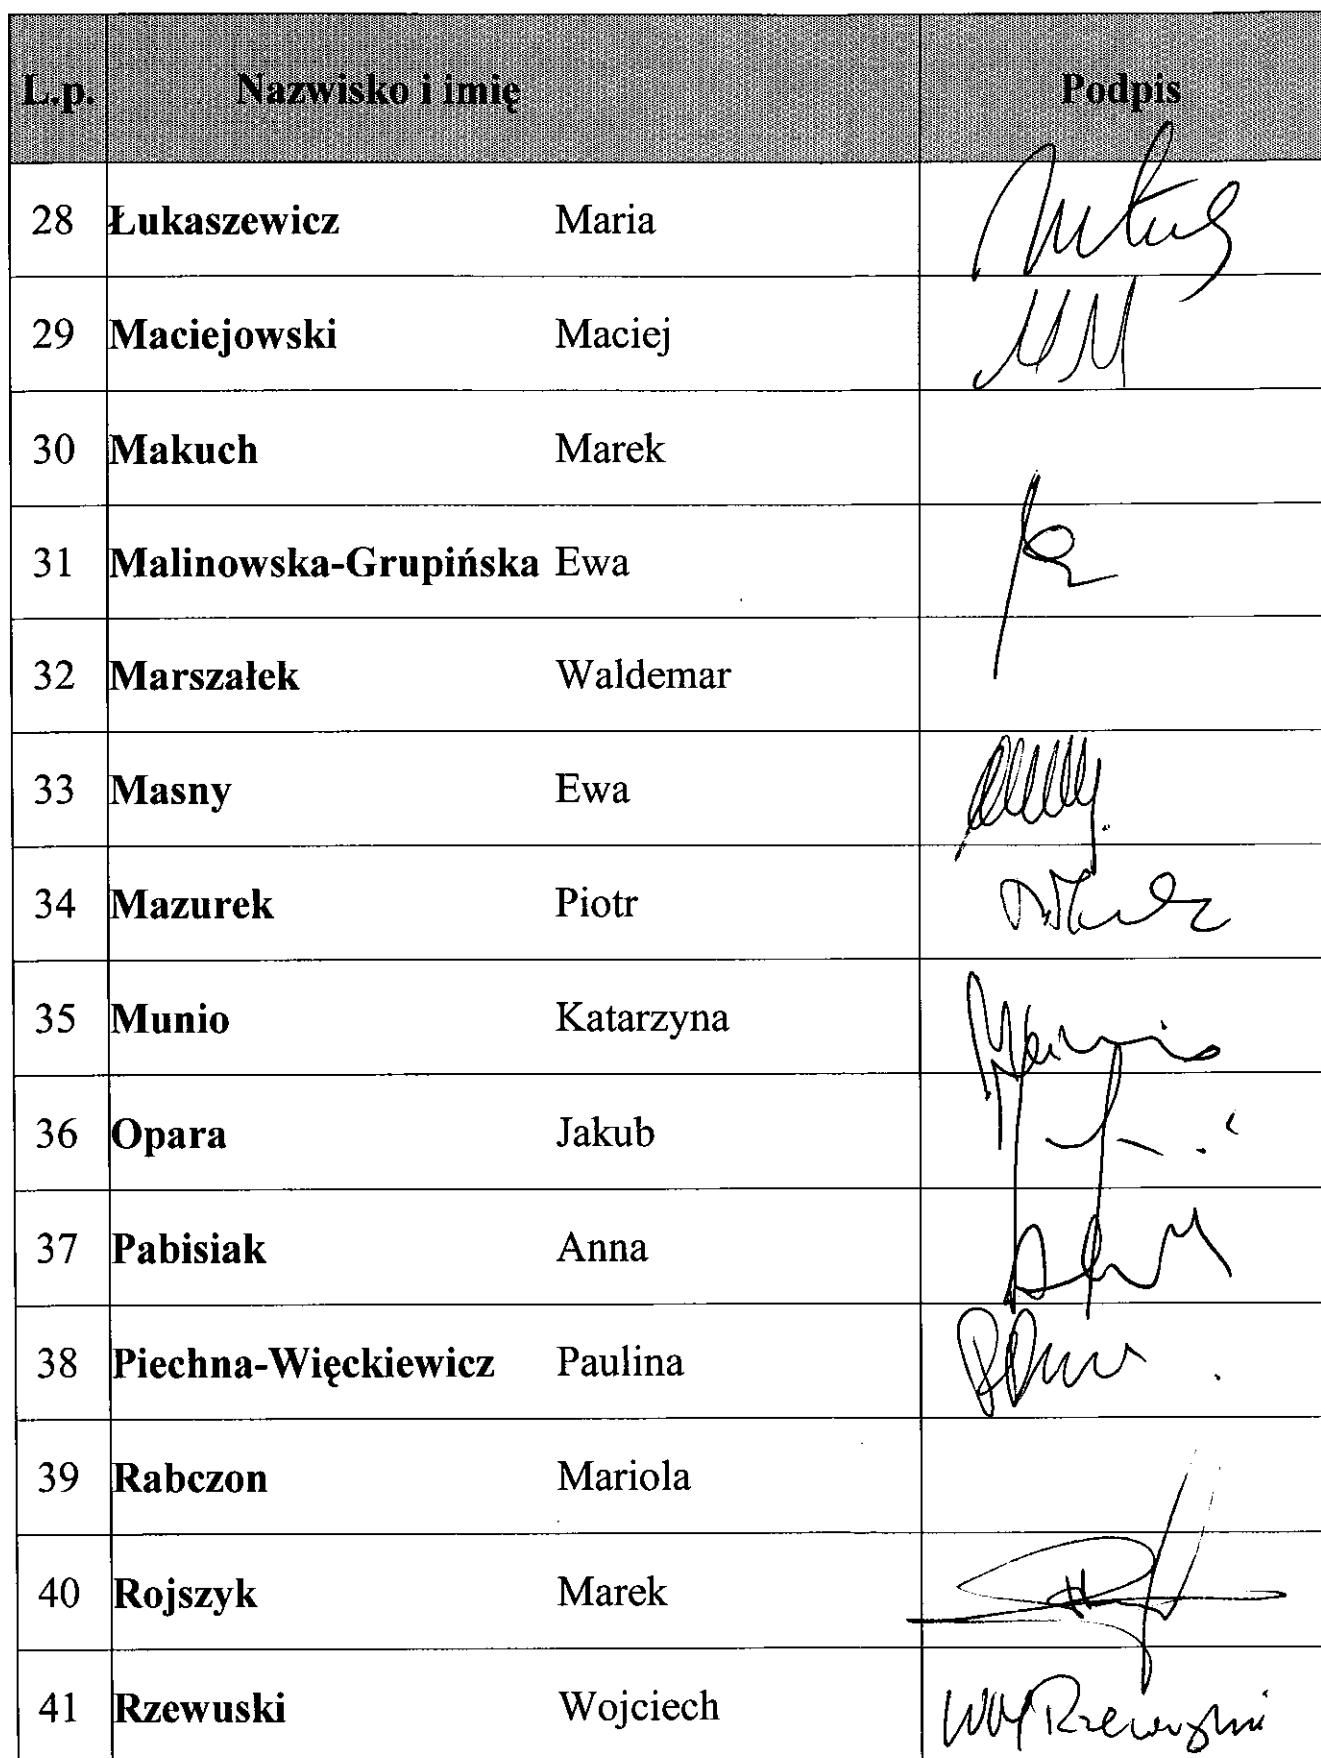 L.p. Nazwisko i imię Podpis
28 Łukaszewicz Maria
29 Maciejowski Maciej MM
30 Makuch Marek
31 Malinowska-Grupińska Ewa
32 Marszałek Waldemar
33 Masny Ewa
34 Mazurek Piotr
35 Munio Katarzyna
36 Opara Jakub
37 Pabisiak Anna
38 Piechna-Więckiewicz Paulina
39 Rabczon Mariola
40 Rojszyk Marek
41 Rzewuski Wojciech Rzewuski